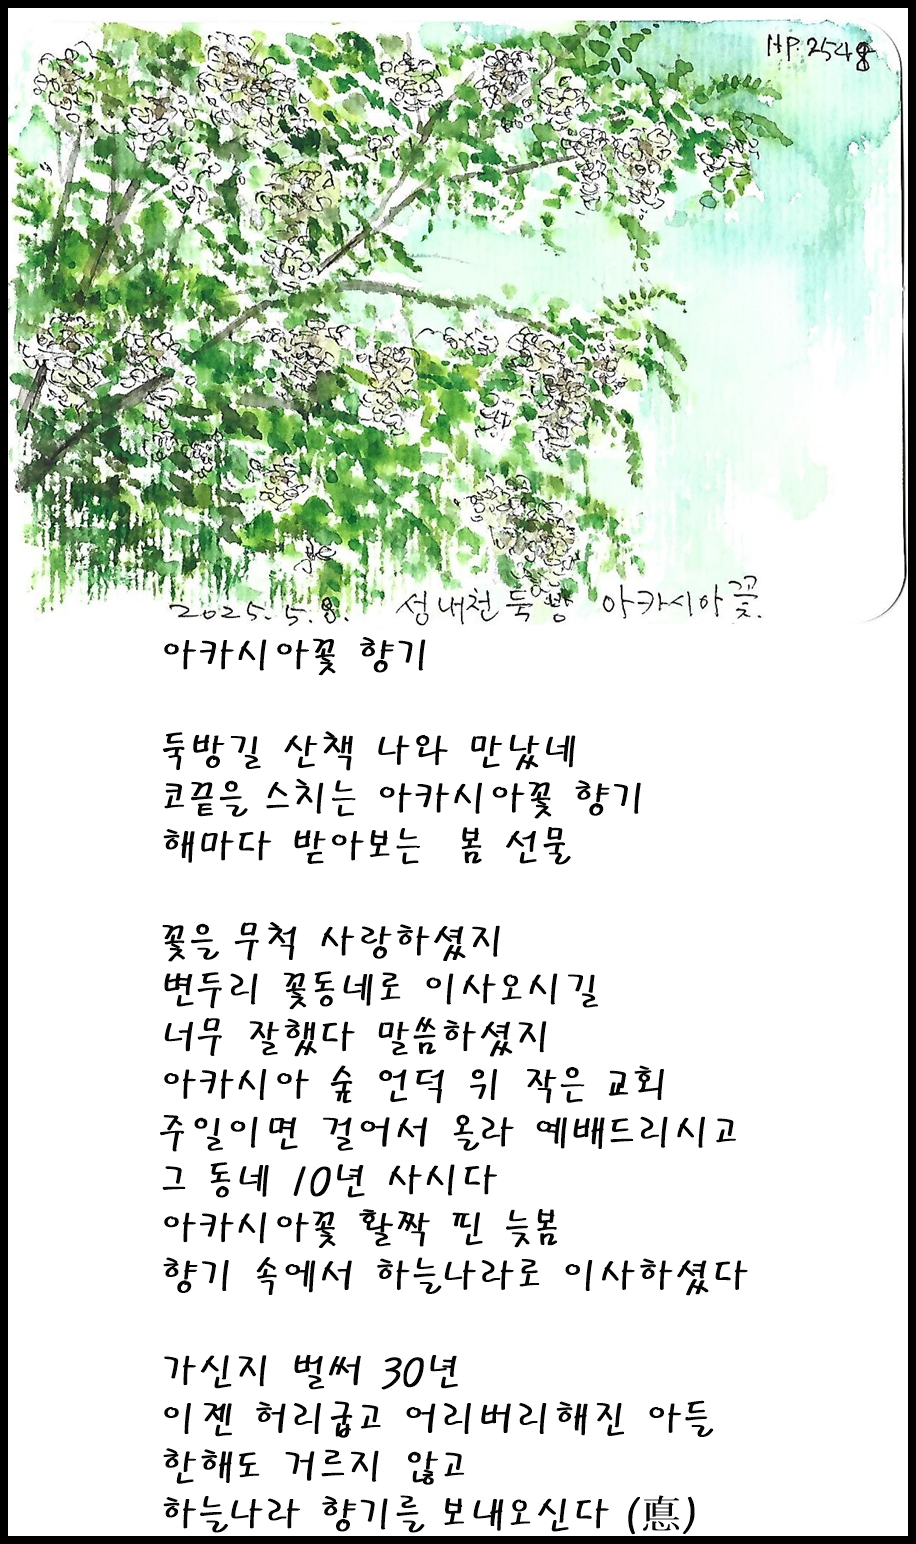 HP.2548
2025.5.8. 성내천둑방 아카시아꽃.
아카시아꽃 향기
둑방길 산책 나와 만났네
코끝을 스치는 아카시아꽃 향기
해마다 받아보는 봄 선물
꽃을 무척 사랑하셨지
변두리 꽃동네로 이사오시길
너무 잘했다 말씀하셨지
아카시아 숲 언덕 위 작은 교회
주일이면 걸어서 올라 예배드리시고
그 동네 10년 사시다
아카시아꽃 활짝 핀 늦봄
향기 속에서 하늘나라로 이사하셨다
가신지 벌써 30년
이젠 허리굽고 어리버리해진 아들
한해도 거르지 않고
하늘나라 향기를 보내오신다 (悳)